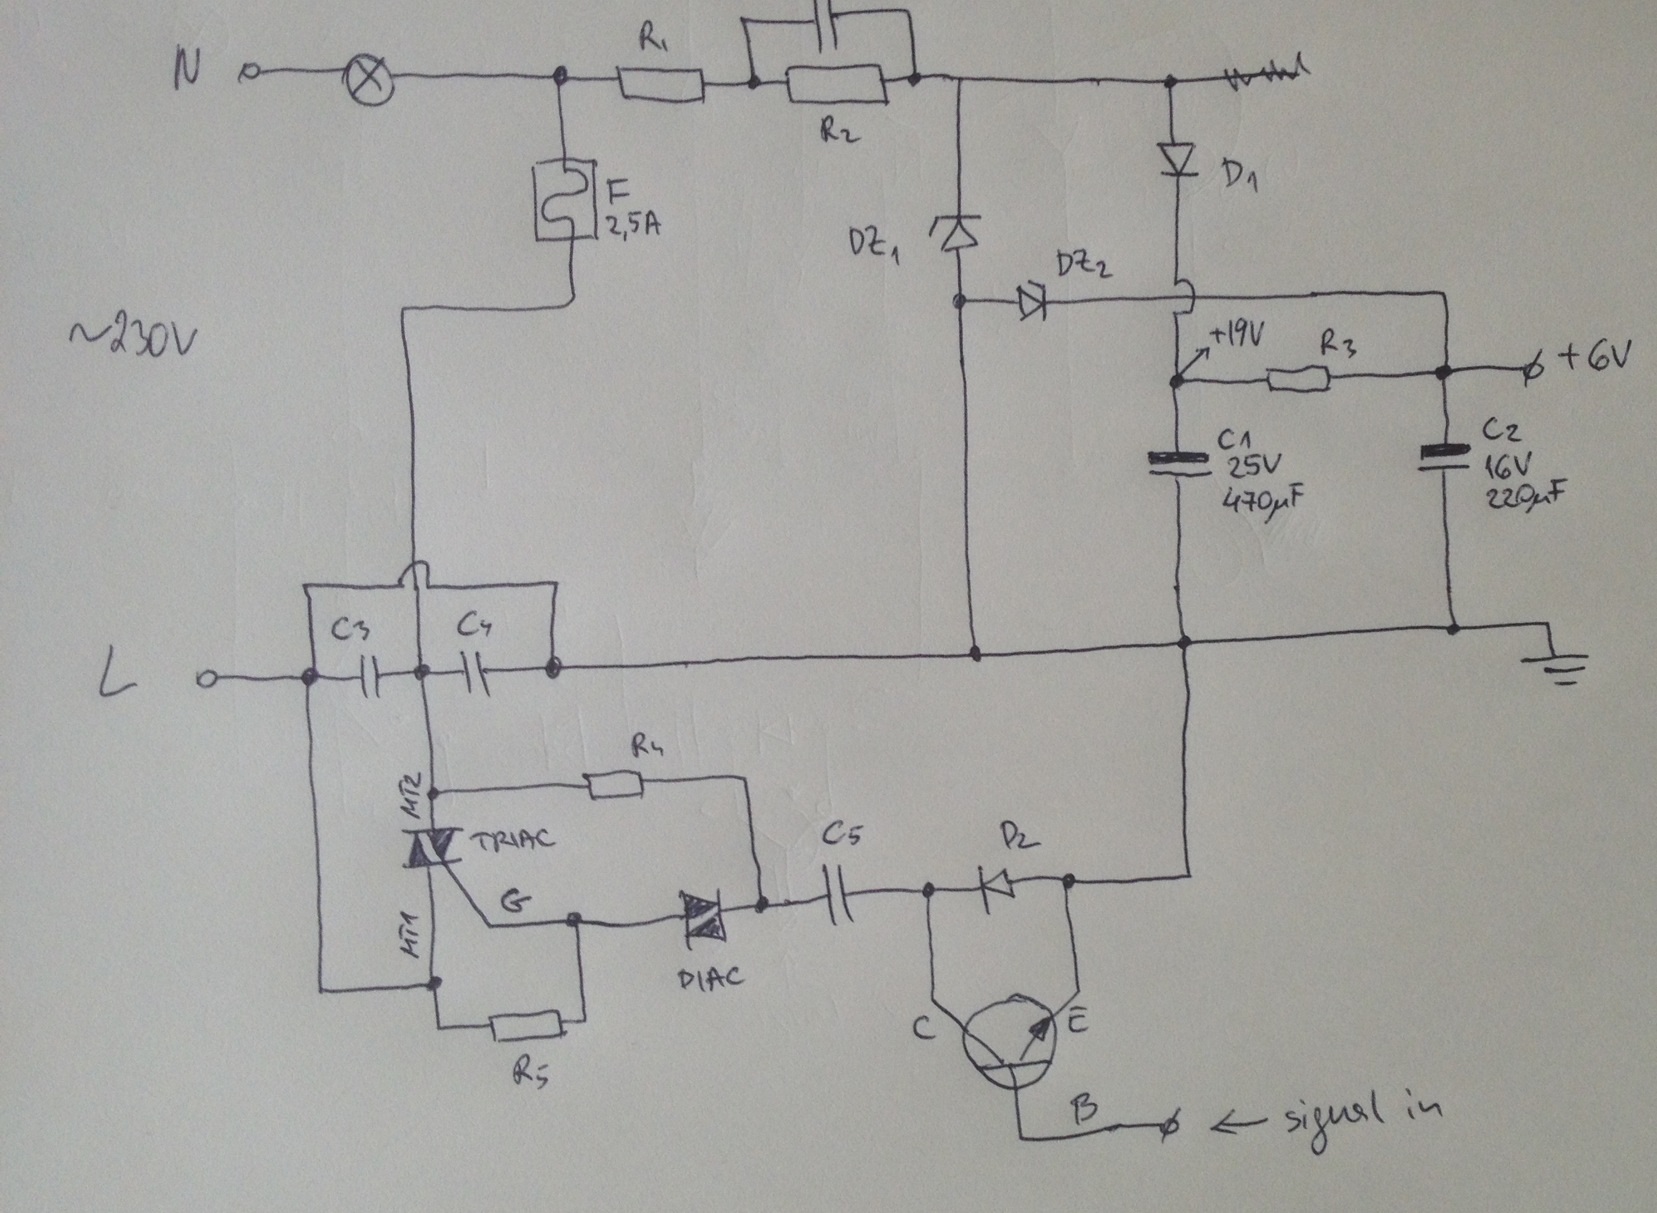 N
R1
R2
F
2,5A
D1
DZ1
DZ2
~230V
+19V
R3
+6V
C1
25V
470µF
C2
16V
220µF
C3
C4
L
R4
MT2
TRIAC
C5
D2
G
MT1
DIAC
R5
C
E
B
← signal in